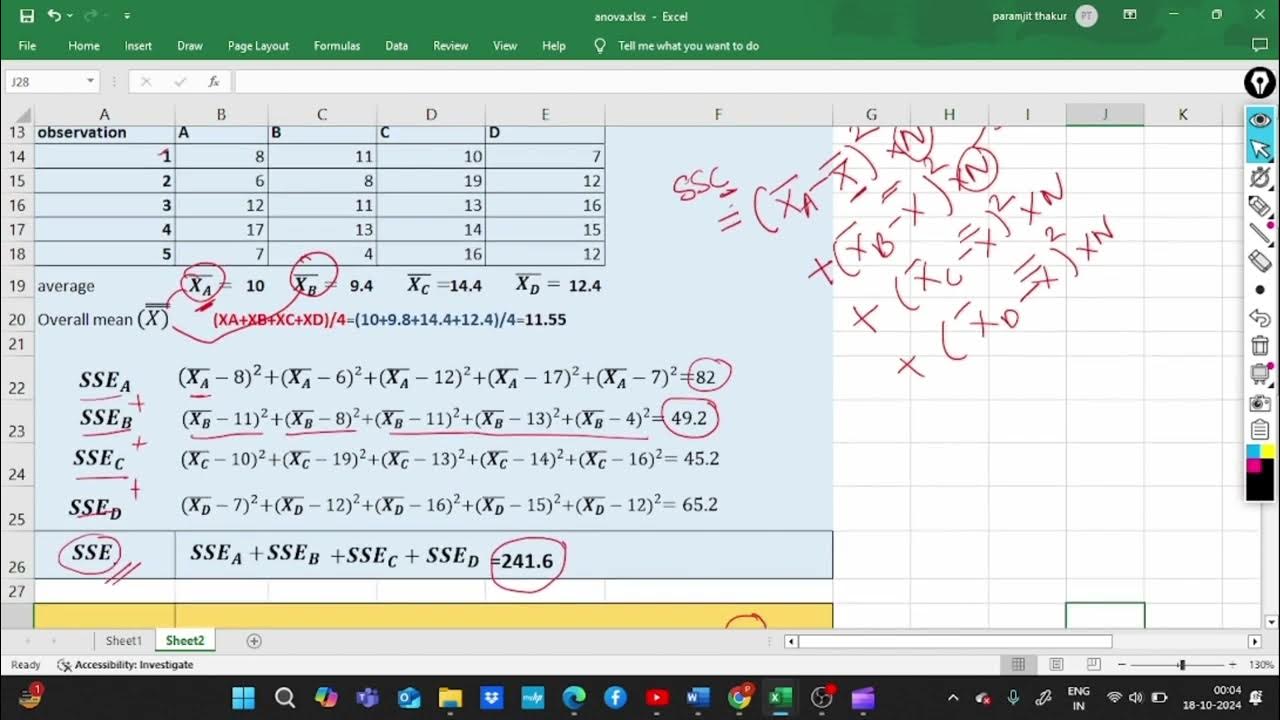 anova.xlsx - Excel
paramjit thakur PT
File Home Insert Draw Page Layout Formulas Data Review View Help Tell me what you want to do
J28 fx
A B C D E F G H I J K L
13 observation A B C D
14 1 8 11 10 7
15 2 6 8 19 12
16 3 12 11 13 16
17 4 17 13 14 15
18 5 7 4 16 12
19 average X̅_A = 10 X̅_B = 9.4 X̅_C =14.4 X̅_D = 12.4
20 Overall mean (X̿) (XA+XB+XC+XD)/4=(10+9.8+14.4+12.4)/4=11.55
21
22 SSE_A (X̅_A − 8)²+(X̅_A − 6)²+(X̅_A − 12)²+(X̅_A − 17)²+(X̅_A − 7)²=82
+
23 SSE_B (X̅_B − 11)²+(X̅_B − 8)²+(X̅_B − 11)²+(X̅_B − 13)²+(X̅_B − 4)²= 49.2
+
24 SSE_C (X̅_C − 10)²+(X̅_C − 19)²+(X̅_C − 13)²+(X̅_C − 14)²+(X̅_C − 16)²= 45.2
+
25 SSE_D (X̅_D − 7)²+(X̅_D − 12)²+(X̅_D − 16)²+(X̅_D − 15)²+(X̅_D − 12)²= 65.2
26 SSE SSE_A + SSE_B +SSE_C + SSE_D =241.6
27
SSC = (X̅_A − X̿)² × N
+ (X̅_B − X̿)² × N
+ (X̅_C − X̿)² × N
+ (X̅_D − X̿)² × N
Sheet1 Sheet2
Ready Accessibility: Investigate 130%
1 ENG 00:04
IN 18-10-2024